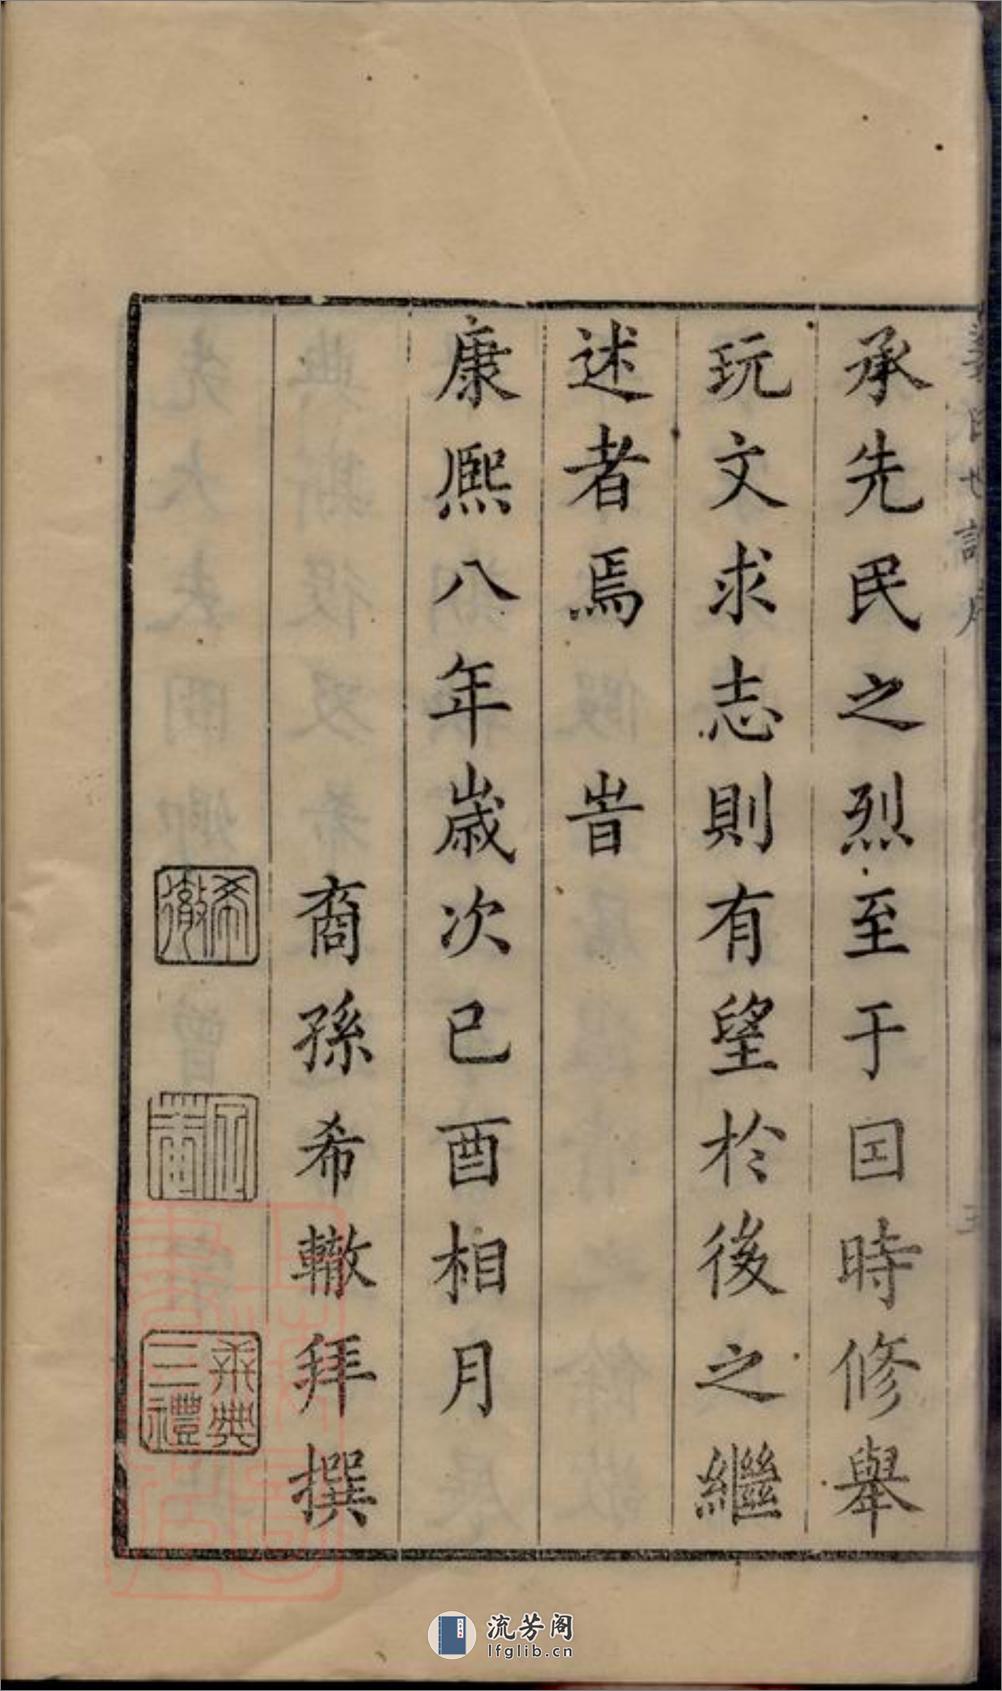 承先民之烈至于囯時修舉
玩文求志則有望於後之繼
述者焉 旹
康熈八年歲次己酉相月
裔孫希轍拜撰
希轍
秉典三禮
流芳阁
lfglib.cn